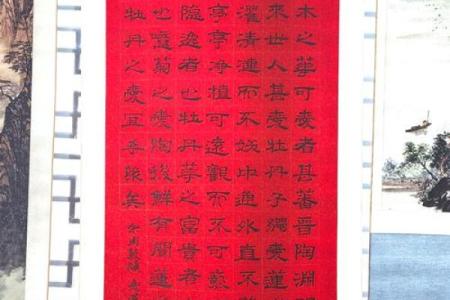 木之華可愛者甚蕃晉陶淵
來世人甚愛牡丹予獨愛蓮
濯清漣而不妖中通外直不
亭亭淨植可遠觀而不可褻
隱逸者也牡丹華之富貴者
也噫菊之愛陶後鮮有聞蓮
牡丹之愛宜乎眾矣